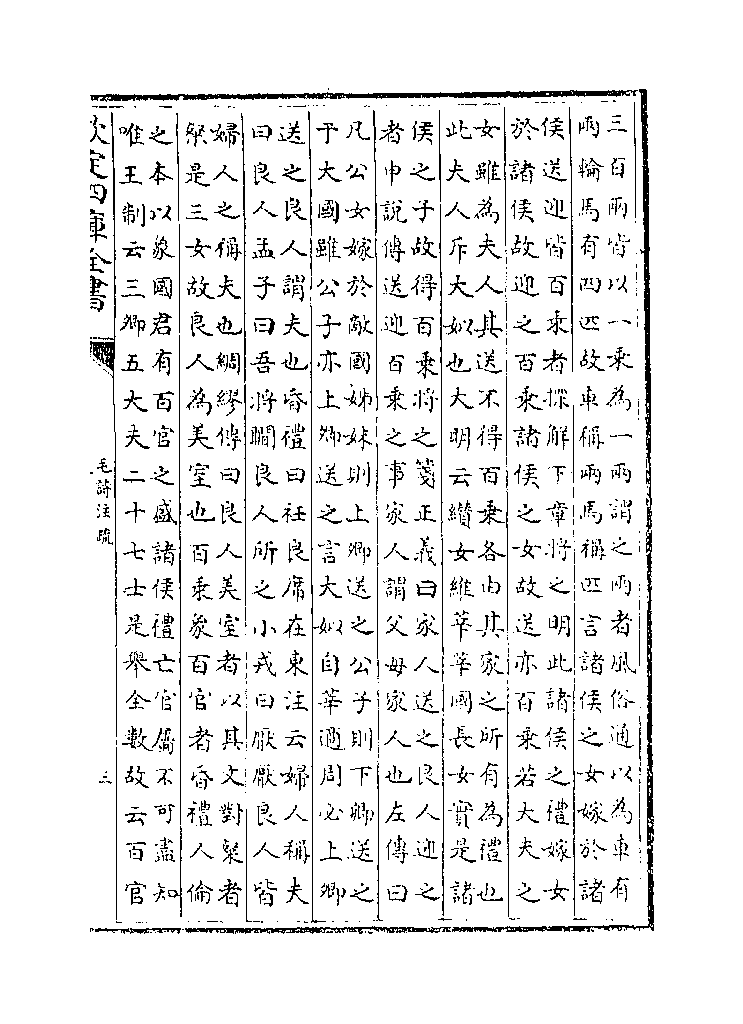 三百兩皆以一乘為一兩謂之兩者風俗通以為車有
兩輪馬有四匹故車稱兩馬稱匹言諸侯之女嫁於諸
侯送迎皆百乘者探解下章將之明此諸侯之禮嫁女
於諸侯故迎之百乘諸侯之女故送亦百乘若大夫之
女雖為夫人其送不得百乘各由其家之所有為禮也
此夫人斥大姒也大明云纘女維莘莘國長女實是諸
侯之子故得百乘將之箋正義曰家人送之良人迎之
者申說傳送迎百乘之事家人謂父母家人也左傳曰
凡公女嫁於敵國姊妹則上卿送之公子則下卿送之
于大國雖公子亦上卿送之言大姒自莘適周必上卿
送之良人謂夫也昏禮曰衽良席在東注云婦人稱夫
曰良人孟子曰吾將瞷良人所之小戎曰厭厭良人皆
婦人之稱夫也綢繆傳曰良人美室者以其文對粲者
粲是三女故良人為美室也百乘象百官者昏禮人倫
之本以象國君有百官之盛諸侯禮亡官屬不可盡知
唯王制云三卿五大夫二十七士是舉全數故云百官
欽定四庫全書
毛詩注疏
三